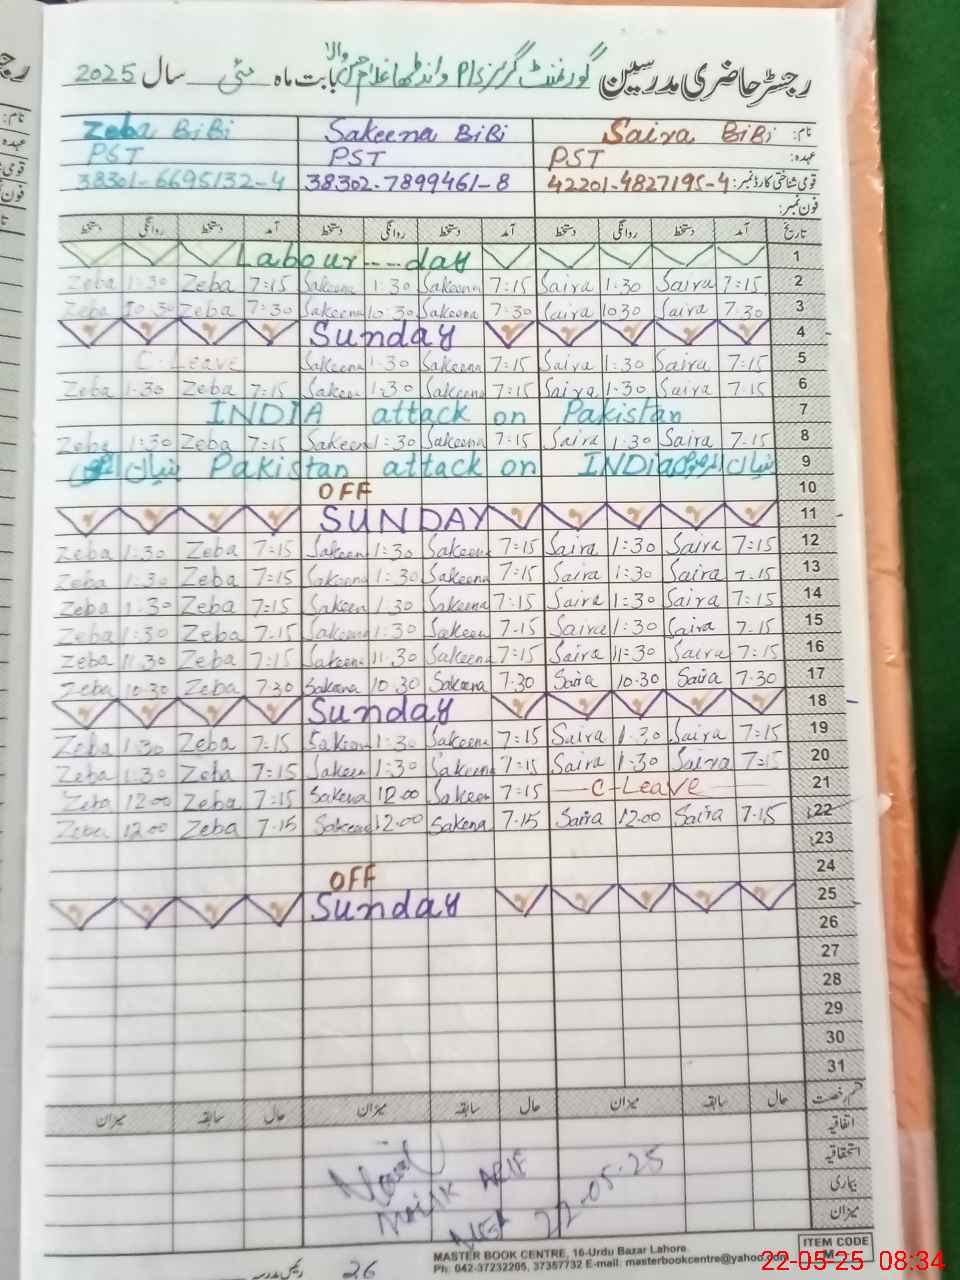 رجسٹر حاضری مدرسین گورنمنٹ گرلز P/S وانڈھا غلام حسن والا بابت ماہ مئی سال 2025
نام: Saira BiBi Sakeena BiBi Zeba BiBi
عہدہ: PST PST PST
قومی شناختی کارڈ نمبر: 42201-4827195-4 38302-7899461-8 38301-6695132-4
فون نمبر:
تاریخ آمد دستخط روانگی دستخط آمد دستخط روانگی دستخط آمد دستخط روانگی دستخط
Labour----day 1
Zeba 1:30 Zeba 7:15 Sakeena 1:30 Sakeena 7:15 Saira 1:30 Saira 7:15 2
Zeba 10:30 Zeba 7:30 Sakeena 10:30 Sakeena 7:30 Saira 10:30 Saira 7.30 3
Sunday 4
C-Leave Sakeena 1:30 Sakeena 7:15 Saira 1:30 Saira 7:15 5
Zeba 1:30 Zeba 7:15 Sakeen 1:30 Sakeena 7:15 Saira 1:30 Saira 7.15 6
INDIA attack on Pakistan 7
Zeba 1:30 Zeba 7:15 Sakeena 1:30 Sakeena 7:15 Saira 1:30 Saira 7.15 8
بنیان Pakistan attack on INDia بنیان المرصوص 9
OFF 10
SUNDAY 11
Zeba 1:30 Zeba 7:15 Sakeen 1:30 Sakeena 7:15 Saira 1:30 Saira 7:15 12
Zeba 1:30 Zeba 7:15 Sakeena 1:30 Sakeena 7:15 Saira 1:30 Saira 7.15 13
Zeba 1:30 Zeba 7:15 Sakeen 1.30 Sakeena 7:15 Saira 1:30 Saira 7:15 14
Zeba 1:30 Zeba 7.15 Sakeena 1:30 Sakeen 7.15 Saira 1:30 Saira 7.15 15
Zeba 11.30 Zeba 7:15 Sakeena 11.30 Sakeena 7:15 Saira 11:30 Saira 7:15 16
Zeba 10.30 Zeba 7.30 Sakeena 10.30 Sakeena 7.30 Saira 10.30 Saira 7.30 17
Sunday 18
Zeba 1:30 Zeba 7:15 Sakeena 1:30 Sakeena 7:15 Saira 1:30 Saira 7:15 19
Zeba 1:30 Zeba 7:15 Sakeen 1:30 Sakeena 7:15 Saira 1:30 Saira 7:15 20
Zeba 12:00 Zeba 7:15 Sakena 12:00 Sakeen 7:15 C-Leave 21
Zeba 12.00 Zeba 7.15 Sakeena 12.00 Sakena 7.15 Saira 12.00 Saira 7.15 22
23
24
OFF
Sunday 25
26
27
28
29
30
31
قسم رخصت حال سابقہ میزان حال سابقہ میزان حال سابقہ میزان
اتفاقیہ
استحقاقیہ
بیماری
میزان
Malik ARIF
22-05-25
26 رئیس مدرسہ
MASTER BOOK CENTRE, 16-Urdu Bazar Lahore.
Ph: 042-37232205, 37357732 E-mail: masterbookcentre@yahoo.com
ITEM CODE
22-05-25 08:34